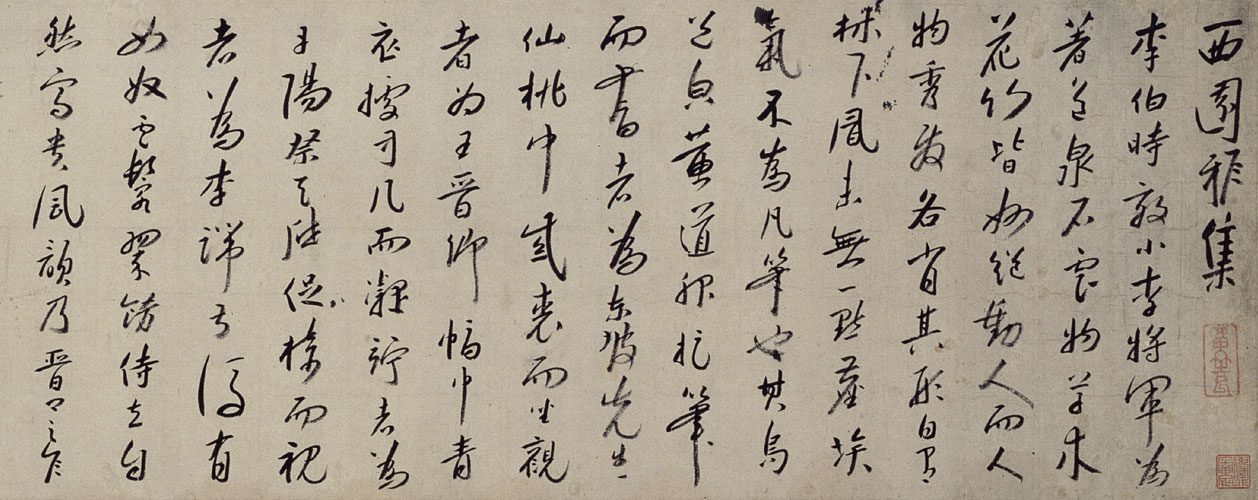 西園雅集
李伯時效小李將軍為
著色泉石雲物草木
花竹皆妙絕動人而人
物秀發各肖其形自有
林下風味無一點塵埃
氣不為凡筆也其烏
黃道服捉筆
而書者為東坡先生
仙桃巾紫裘而坐觀
者為王晉卿幅巾青
衣據方几而凝竚者為
丹陽蔡天啟捉椅而視
者為李端叔後有
女奴雲鬟翠飾侍立自
然富貴風韻乃晉卿之家